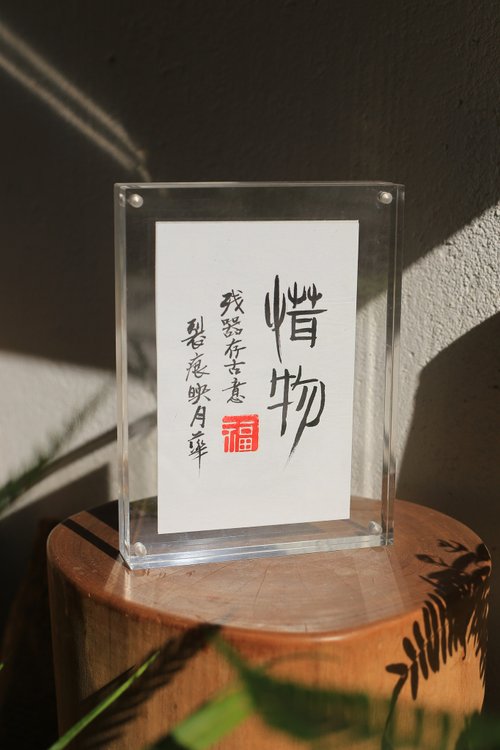 惜物
残器存古意
裂痕映月華
福